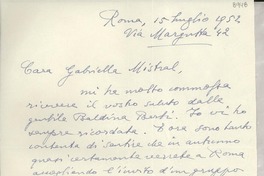 8978
Roma, 15 luglio 1952
Via Margutta 42
Cara Gabriella Mistral,
mi ha molto commosso
ricevere il vostro saluto dalla
gentile Baldina Berti. Io vi ho
sempre ricordata. Ora sono tanto
contenta di sentire che in autunno
quasi certamente verrete a Roma
accogliendo l'invito d'un gruppo